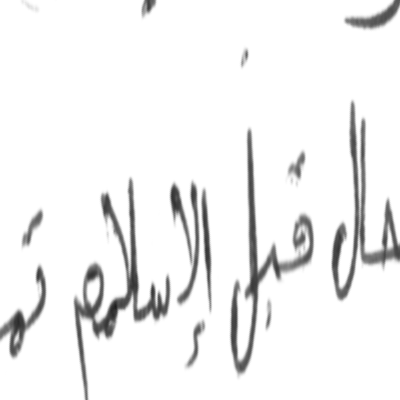 حال قبل الإسلام